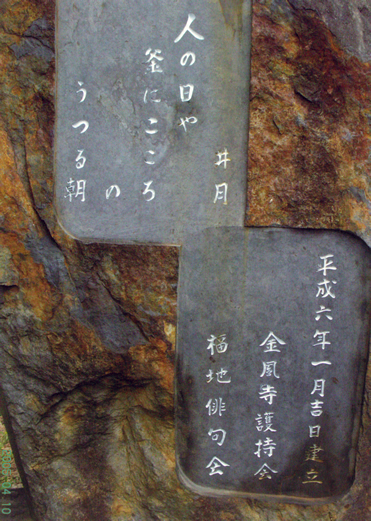 井月
人の日や
釜にこころ
の
うつる朝
平成六年一月吉日建立
金鳳寺護持会
福地俳句会